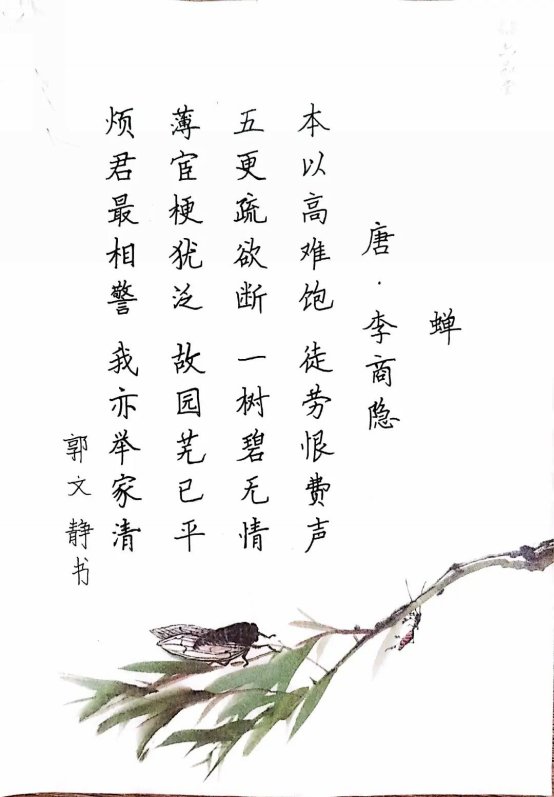 蝉
唐·李商隐
本以高难饱 徒劳恨费声
五更疏欲断 一树碧无情
薄宦梗犹泛 故园芜已平
烦君最相警 我亦举家清
郭文静书